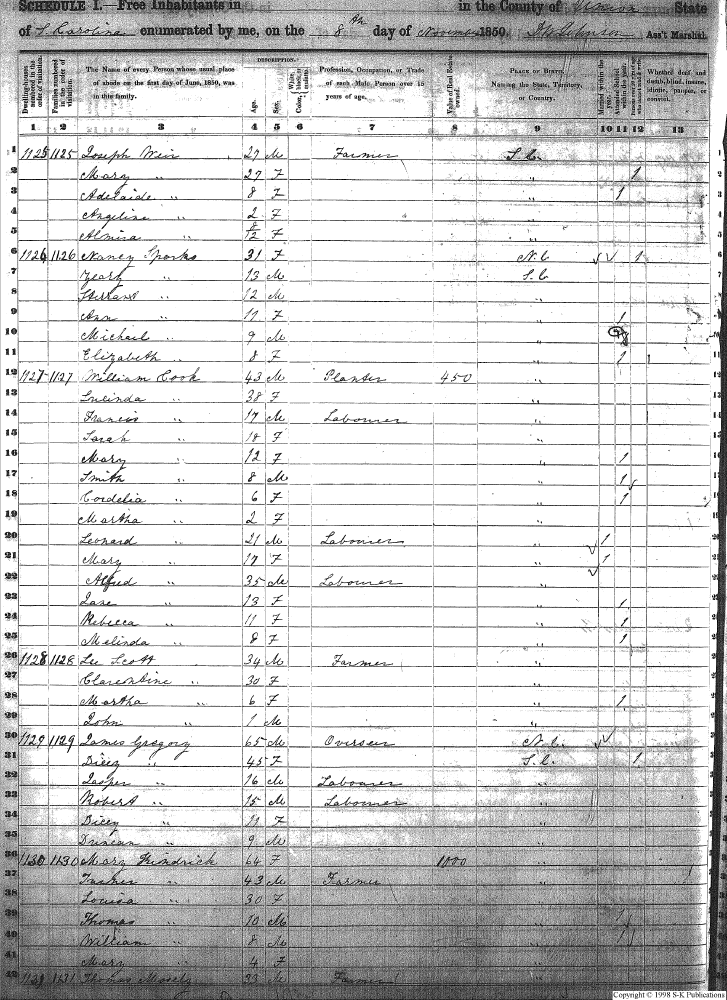 SCHEDULE I.—Free Inhabitants in in the County of Union State
of S Carolina enumerated by me, on the 8th day of November 1850. Ass't Marshal.
DESCRIPTION.
Dwelling-houses numbered in the order of visitation.
Families numbered in the order of visitation.
The Name of every Person whose usual place of abode on the first day of June, 1850, was in this family.
Age.
Sex.
White, black, or mulatto.
Color,
Profession, Occupation, or Trade of each Male Person over 15 years of age.
Value of Real Estate owned.
PLACE OF BIRTH. Naming the State, Territory, or Country.
Married within the year.
Attended School within the year.
Whether deaf and dumb, blind, insane, idiotic, pauper, or convict.
1 2 3 4 5 6 7 8 9 10 11 12 13
1 1125 1125 Joseph Weir 27 M Farmer S.C. 1
2 Mary " 27 F " 1 2
3 Adelaide " 8 F " 1 3
4 Angeline " 2 F " 4
5 Almira " 8/12 F " 5
6 1126 1126 Nancy Sparks 31 F N.C ✓✓ 1 6
7 " 13 M S.C 7
8 " 12 M " 8
9 Ann " 11 F " 1 9
10 Michael " 9 M " 10
11 Elizabeth " 8 F " 1 11
12 1127 1127 William Cook 43 M Planter 450 " 12
13 Lucinda " 38 F " 13
14 Francis " 17 M Labourer " 14
15 Sarah " 18 F " 15
16 Mary " 12 F " 1 16
17 Smith " 8 M " 1 17
18 Cordelia " 6 F " 1 18
19 Martha " 2 F " 19
20 Leonard " 21 M Labourer " ✓ 1 20
21 Mary " 17 F " ✓ 1 21
22 Alfred " 35 M Labourer " 22
23 Jane " 13 F " 1 23
24 Rebecca " 11 F " 1 24
25 Melinda " 8 F " 1 25
26 1128 1128 Lee Scott 34 M Farmer " 26
27 Clarentine " 30 F " 27
28 Martha " 6 F " 1 28
29 John " 1 M " 29
30 1129 1129 James Gregory 65 M Overseer N.C. ✓✓ 30
31 Dicey " 45 F S.C. 1 31
32 Jasper " 16 M Labourer " 32
33 Robert " 15 M Labourer " 33
34 Dicey " 11 F " 34
35 Duncan " 9 M " 35
36 1130 1130 Mary Kindrick 64 F 1000 " 36
37 Turner " 43 M Farmer " 37
38 Louisa " 30 F " 38
39 Thomas " 10 M " 1 39
40 William " 8 M " 1 40
41 Mary " 4 F " 41
42 1131 1131 Thomas Mosely 33 M Farmer " 42
Copyright © 1998 S-K Publications